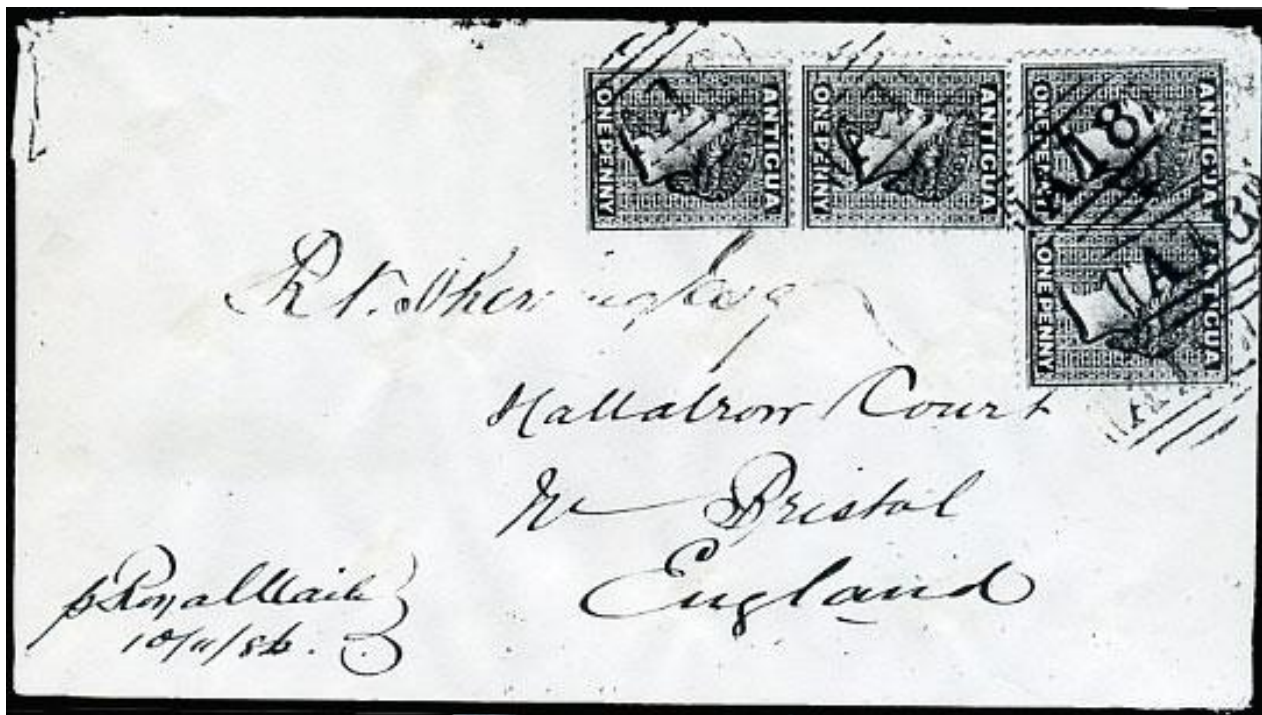 ANTIGUA
ONE PENNY
ANTIGUA
ONE PENNY
ANTIGUA
ONE PENNY
ANTIGUA
ONE PENNY
A18
R
Hallatrow Court
Nr Bristol
England
p Royal Mail
10/11/86.